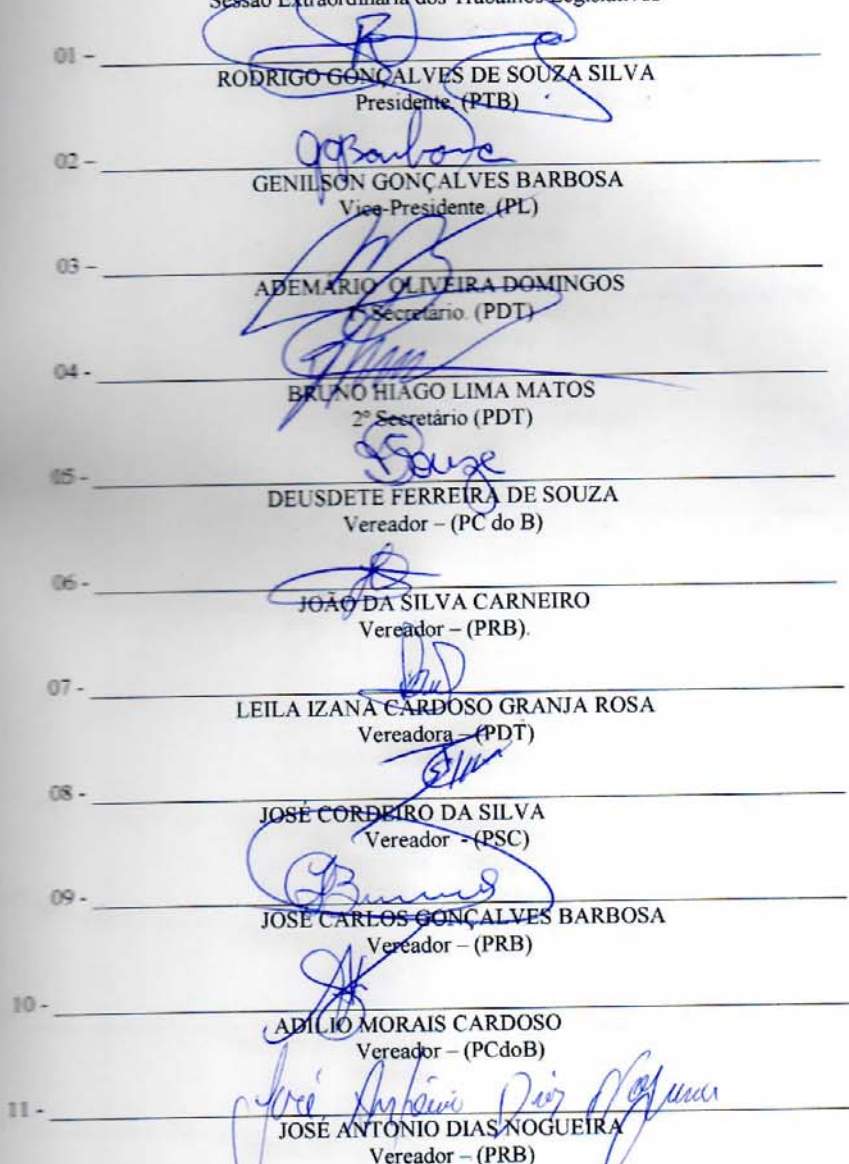 Sessão Extraordinária dos Trabalhos Legislativos
01 -
RODRIGO GONÇALVES DE SOUZA SILVA
Presidente. (PTB)
02 -
GENILSON GONÇALVES BARBOSA
Vice-Presidente. (PL)
03 -
ADEMÁRIO OLIVEIRA DOMINGOS
1º Secretário. (PDT)
04 -
BRUNO HIAGO LIMA MATOS
2º Secretário (PDT)
05 -
DEUSDETE FERREIRA DE SOUZA
Vereador – (PC do B)
06 -
JOÃO DA SILVA CARNEIRO
Vereador – (PRB).
07 -
LEILA IZANA CARDOSO GRANJA ROSA
Vereadora – (PDT)
08 -
JOSÉ CORDEIRO DA SILVA
Vereador - (PSC)
09 -
JOSÉ CARLOS GONÇALVES BARBOSA
Vereador – (PRB)
10 -
ADILIO MORAIS CARDOSO
Vereador – (PCdoB)
11 - José Antônio Dias Nogueira
JOSÉ ANTÔNIO DIAS NOGUEIRA
Vereador – (PRB)